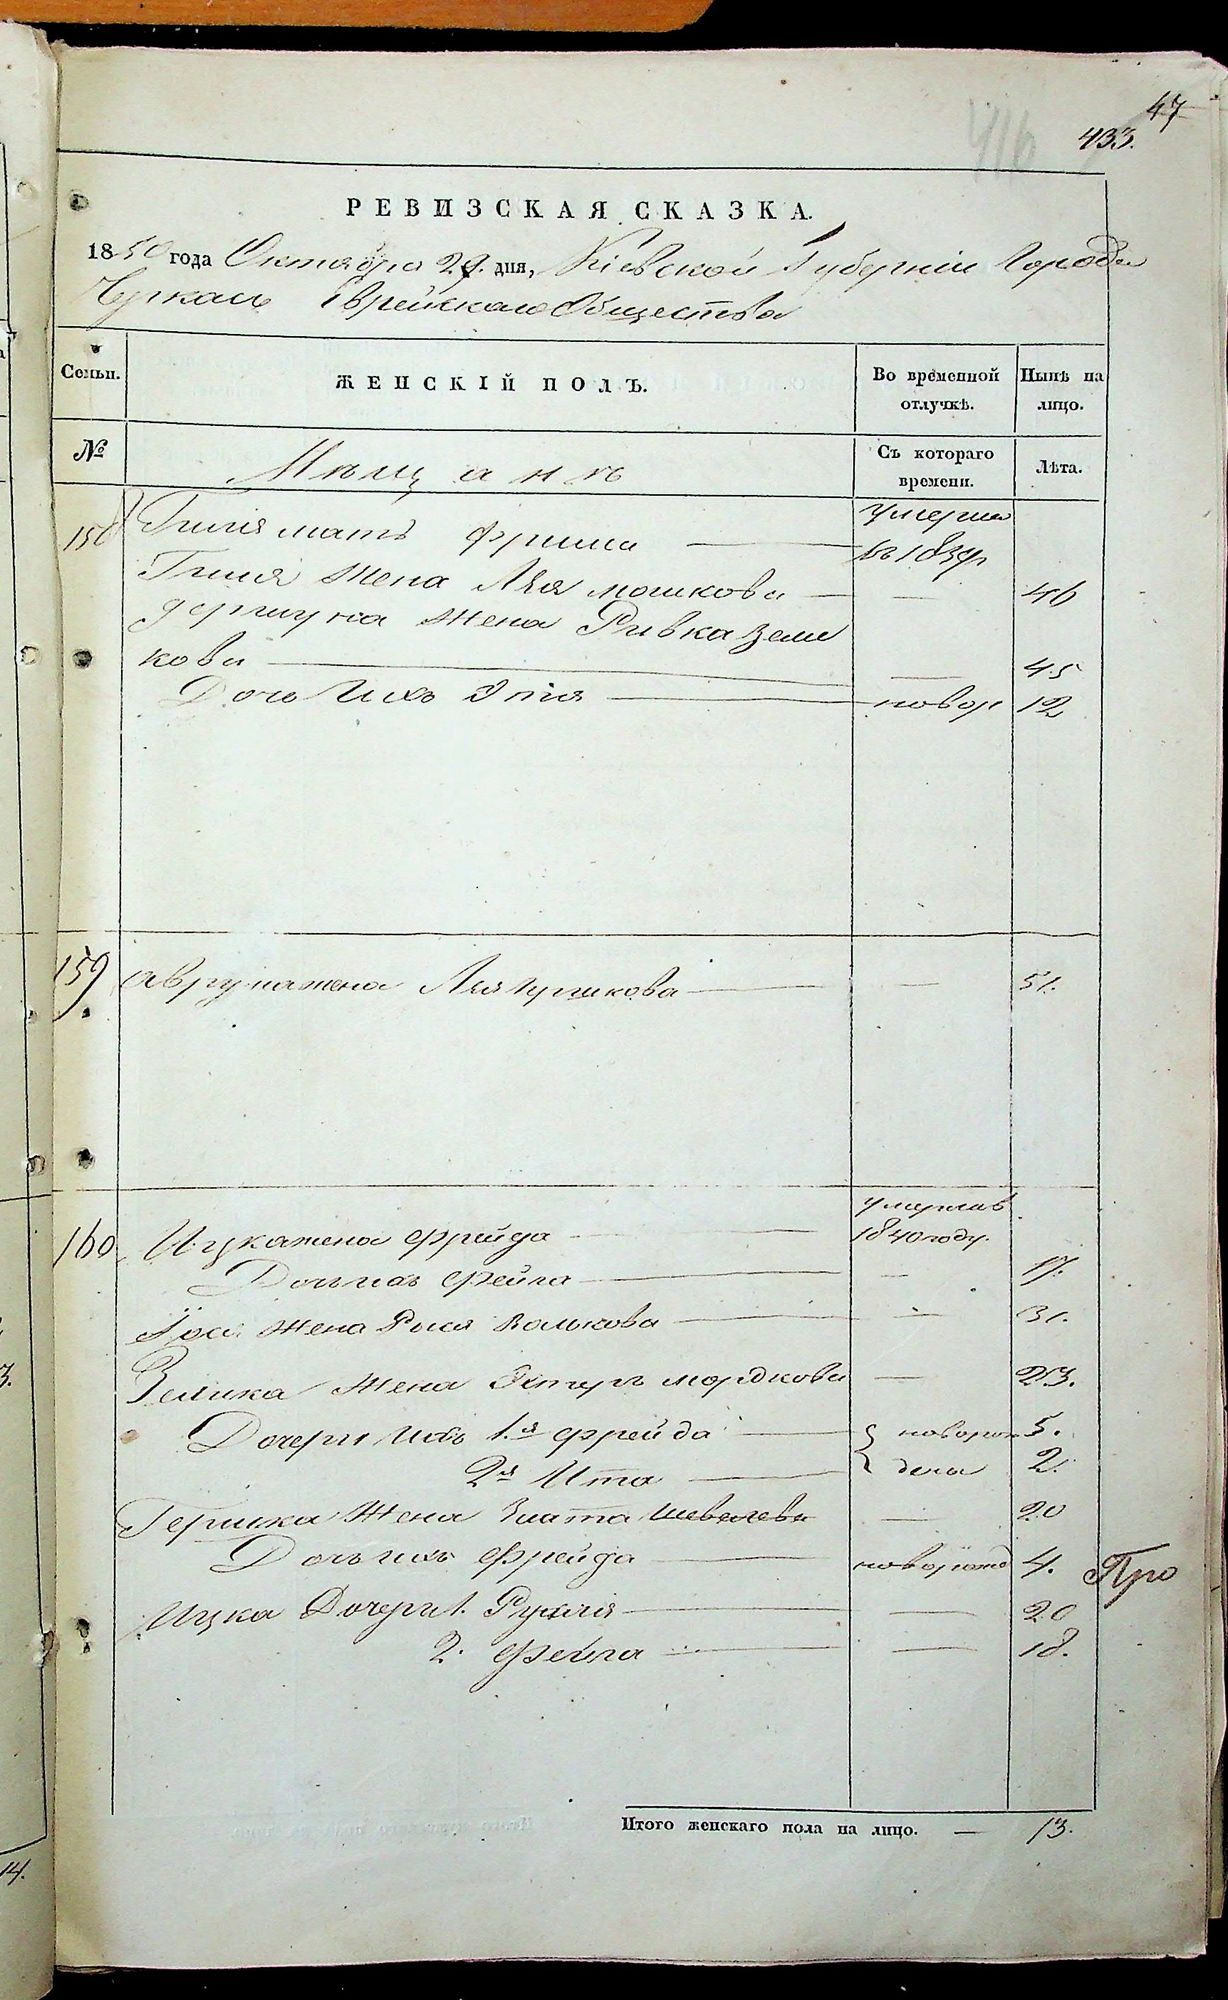 47
433.
416
РЕВИЗСКАЯ СКАЗКА.
1850 года Октября 29. дня, Кіевской Губерніи Города
Черкасъ Еврейскаго Общества
Семьи.
ЖЕНСКІЙ ПОЛЪ.
Во временной отлучкѣ.
Нынѣ на лицо.
№
Мѣщанъ
Съ котораго времени.
Лѣта.
158 мать Фрима — умерла
въ 183
жена Лея Мошкова — — 46
жена Ривка Зели
кова — — 45
Дочь Ихъ Этя — новор 12
159 Аврума жена Лея — — 51.
160 Ицка жена Фрейда — умерла в
1840 году.
Дочь ихъ Фейга — — 17.
жена Рыся Волькова — — 31.
Зелика Жена Эстеръ Мордкова — 23.
Дочери Ихъ 1.я Фрейда — новорож 5.
2я Ита — дены 2.
Гершка Жена Злата — 20
Дочь ихъ Фрейда — новорожд 4.
Про
Ицка Дочери 1. Рухля — — 20
2. Фейга — — 18.
Итого женскаго пола на лицо. — 13.
3.
14.